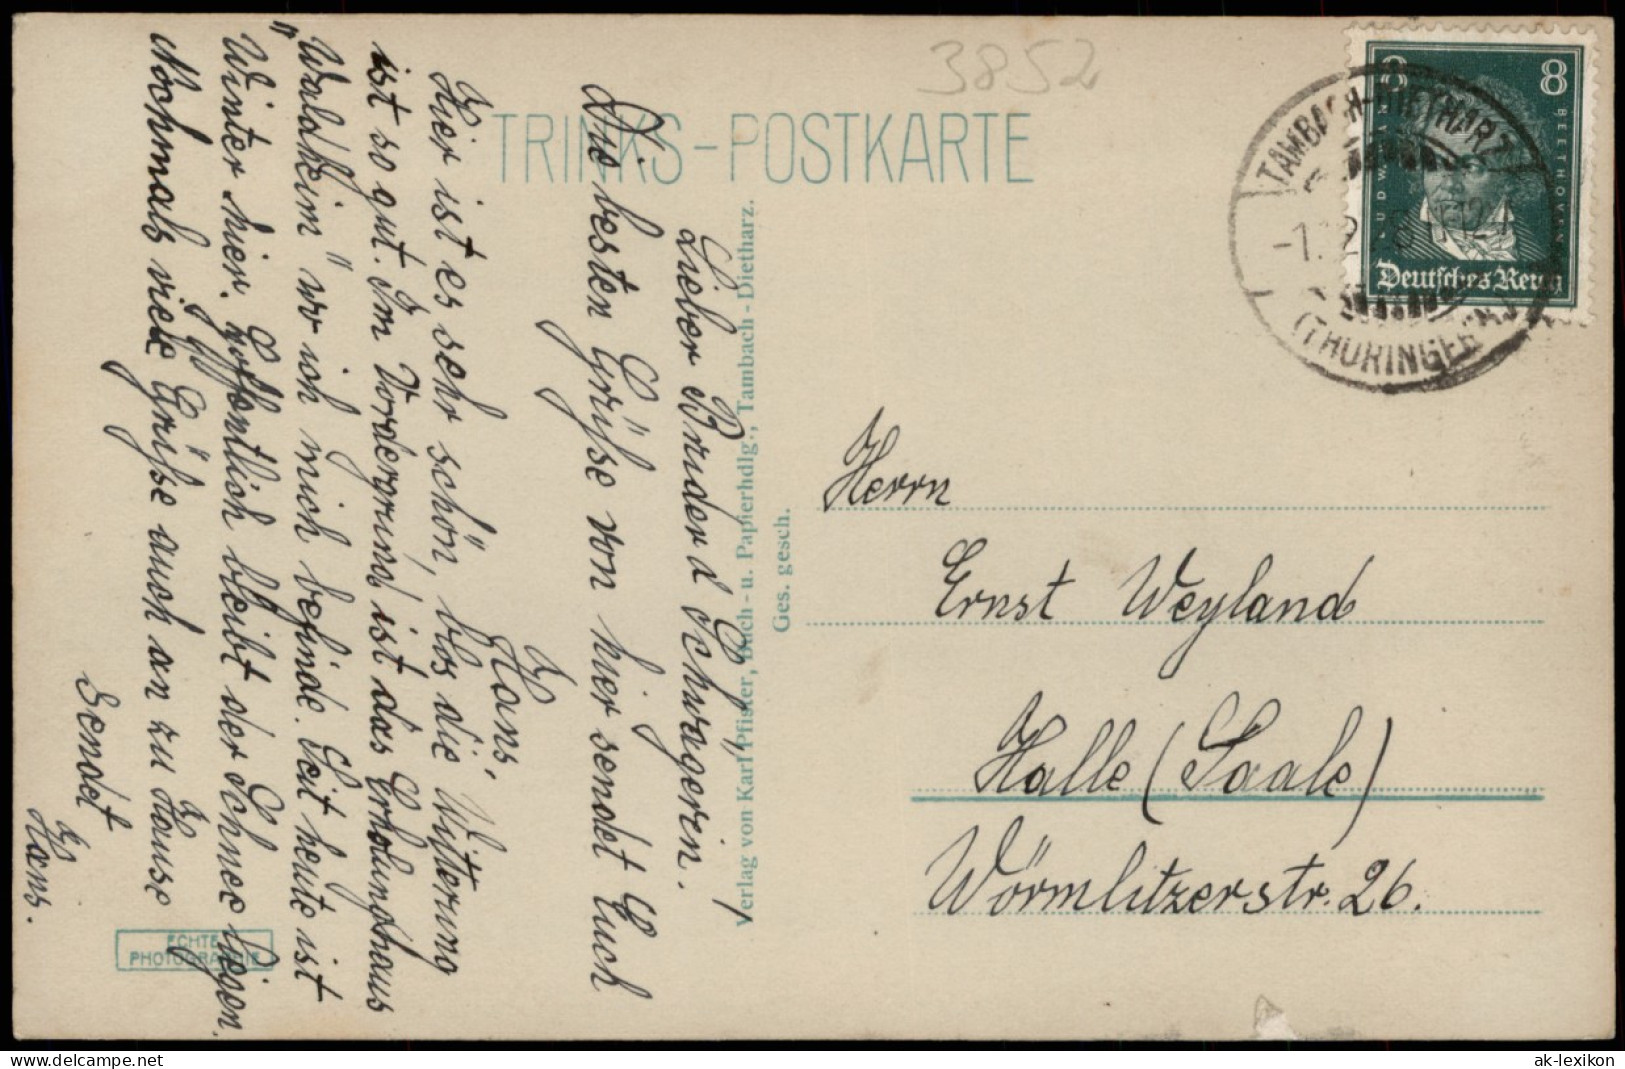 3852
TRINKS-POSTKARTE
Lieber Bruder u Schwägerin.
Die besten Grüße von hier sendet Euch
Hans.
Hier ist es sehr schön, blos die Witterung
ist so gut. Im Vordergrund ist das Erholungshaus
"Waldheim" wo ich mich befinde. Seit heute ist
Winter hier, hoffentlich bleibt der Schnee liegen.
Nochmals viele Grüße auch an zu Hause
sendet
Hans.
Verlag von Karl Pfister, Buch- u. Papierhdlg., Tambach-Dietharz.
Ges. gesch.
ECHTE
PHOTOGRAPHIE
8 8
LUDWIG VAN BEETHOVEN
Deutsches Reich
TAMBACH-DIETHARZ
(THÜRINGER
Herrn
Ernst Weyland
Halle (Saale)
Wörmlitzerstr. 26.
www.delcampe.net
ak-lexikon